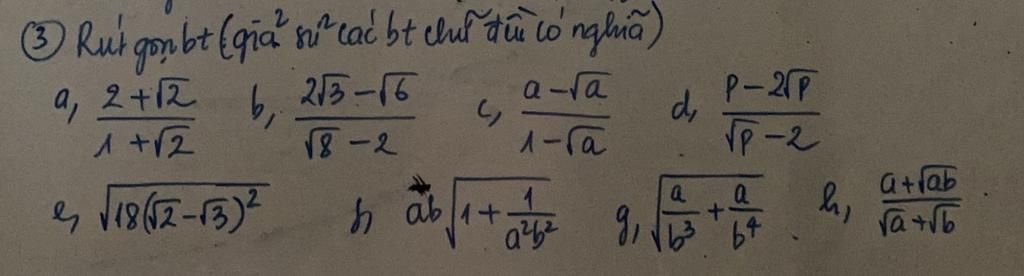 ③ Rút gọn bt (giả sử các bt chữ đều có nghĩa)
a, (2+√2)/(1+√2) b, (2√3-√6)/(√8-2) c, (a-√a)/(1-√a) d, (p-2√p)/(√p-2)
e, √(18(√2-√3)²) f, ab√(1+1/(a²b²)) g, √(a/b³+a/b⁴) . h, (a+√ab)/(√a+√b) .